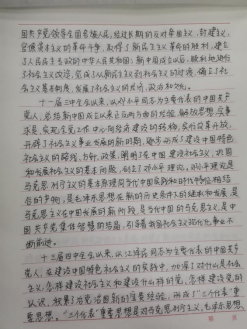 国共产党领导全国各族人民,经过长期的反对帝国主义、封建主义、
官僚资本主义的革命斗争,取得了新民主主义革命的胜利,建立
了人民民主专政的中华人民共和国;新中国成立以后,顺利地进行
了社会主义改造,完成了从新民主主义到社会主义的过渡,确立了社
会主义基本制度,发展了社会主义的经济、政治和文化。
十一届三中全会以来,以邓小平同志为主要代表的中国共产
党人,总结新中国成立以来正反两方面的经验,解放思想,实事
求是,实现全党工作中心向经济建设的转移,实行改革开放,
开辟了社会主义事业发展的新时期,逐步形成了建设中国特色
社会主义的路线、方针、政策,阐明了在中国建设社会主义、巩固
和发展社会主义的基本问题,创立了邓小平理论。邓小平理论是
马克思列宁主义的基本原理同当代中国实践和时代特征相结
合的产物,是毛泽东思想在新的历史条件下的继承和发展,是
马克思主义在中国发展的新阶段,是当代中国的马克思主义,是中
国共产党集体智慧的结晶,引导着我国社会主义现代化事业不
断前进。
十三届四中全会以来,以江泽民同志为主要代表的中国共产
党人,在建设中国特色社会主义的实践中,加深了对什么是社会
主义、怎样建设社会主义和建设什么样的党、怎样建设党的
认识,积累了治党治国新的宝贵经验,形成了“三个代表”重
要思想。“三个代表”重要思想是对马克思列宁主义、毛泽东思想、